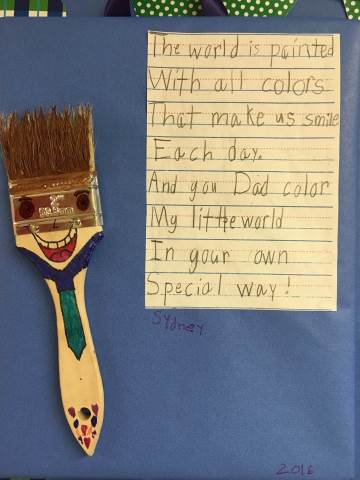 The world is painted
With all colors
That make us smile
Each day.
And you Dad color
My little world
In your own
Special way!
Sydney
2016